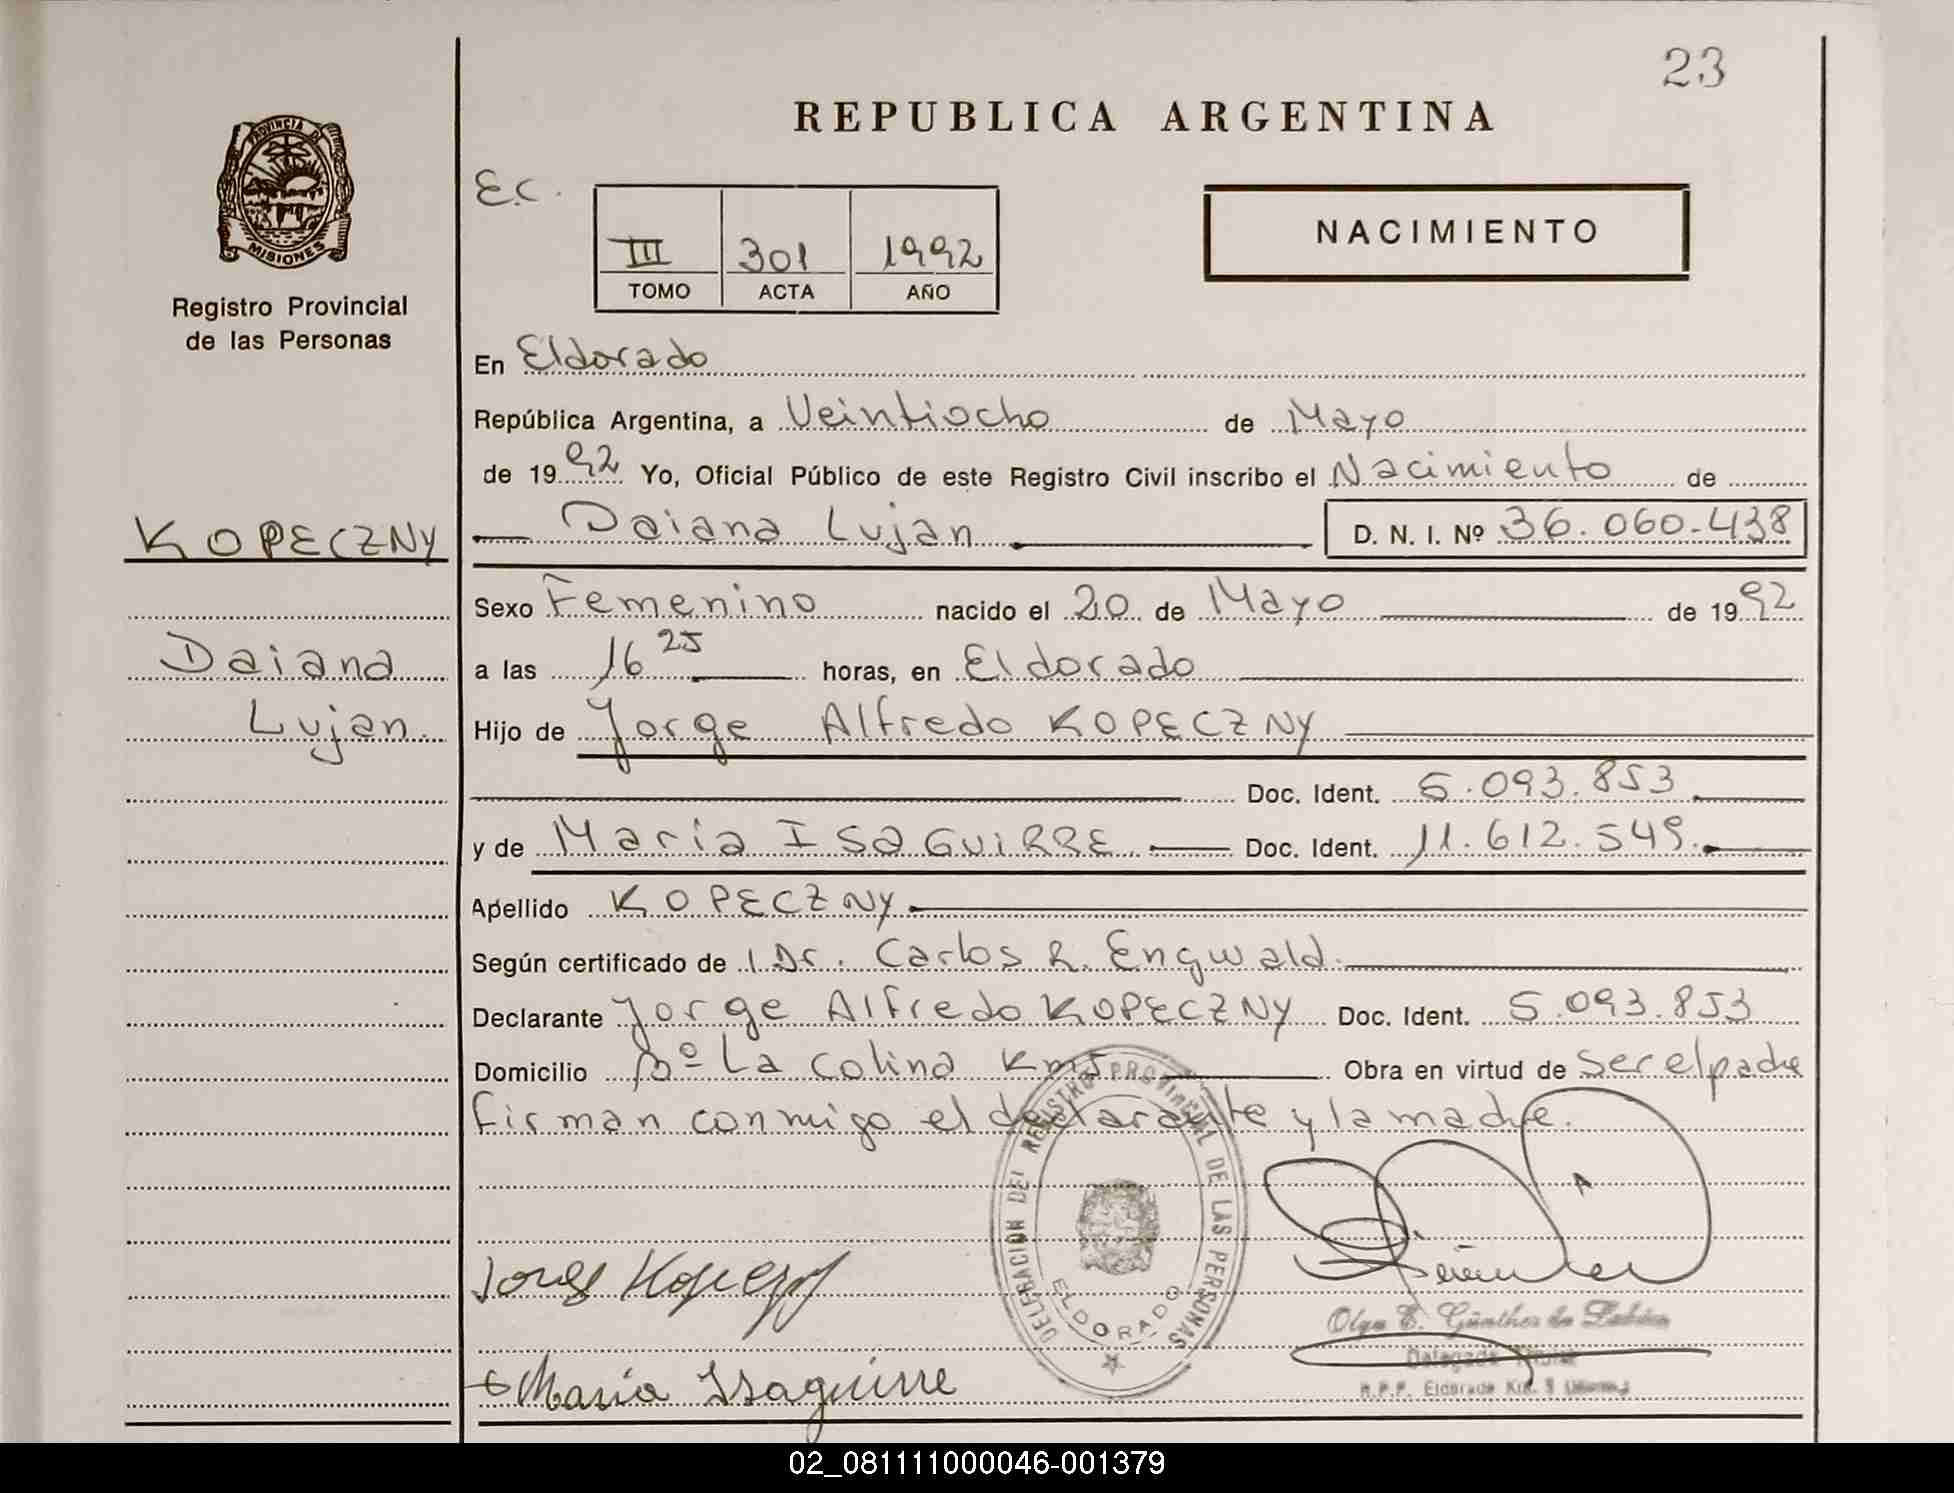 23
REPUBLICA ARGENTINA
PROVINCIA D
MISIONES
Registro Provincial
de las Personas
E.C.
III 301 1992
TOMO ACTA AÑO
NACIMIENTO
En Eldorado
República Argentina, a Veintiocho de Mayo
de 1992 Yo, Oficial Público de este Registro Civil inscribo el Nacimiento de
KOPECZNY
Daiana Lujan D. N. I. Nº 36.060.438
Sexo Femenino nacido el 20 de Mayo de 1992
Daiana
a las 16 25 horas, en Eldorado
Lujan.
Hijo de Jorge Alfredo KOPECZNY
Doc. Ident. 5.093.853
y de Maria ISAGUIRRE Doc. Ident. 11.612.549.
Apellido KOPECZNY
Según certificado de Dr. Carlos R. Engwald.
Declarante Jorge Alfredo KOPECZNY Doc. Ident. 5.093.853
Domicilio Bº La Colina Km5 Obra en virtud de ser el padre
firman conmigo el declarante y la madre.
DELEGACION DEL REGISTRO PROVINCIAL DE LAS PERSONAS
ELDORADO
Olga E. Günther de
Delegada
R.P.P. Eldorado Km. 
Maria Isaguirre
02_081111000046-001379